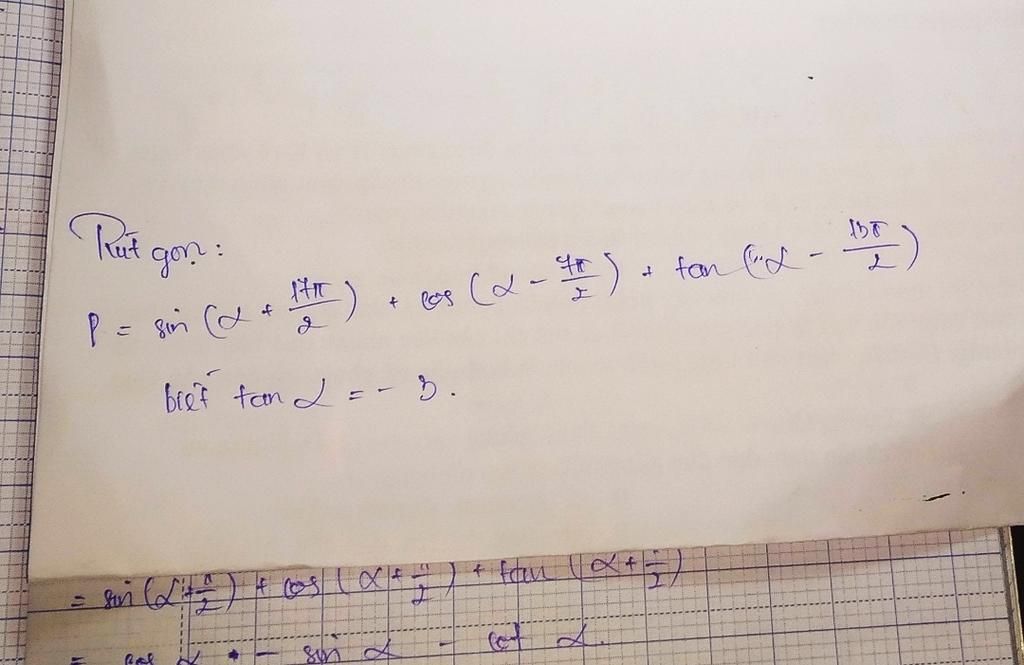 Rút gọn:
P = sin (α + 17π/2) + cos (α - 7π/2) + tan (α - 13π/2)
biết tan α = - 3.
= sin (α + π/2) + cos (α + π/2) + tan (α + π/2)
= cos α - sin α - cot α.